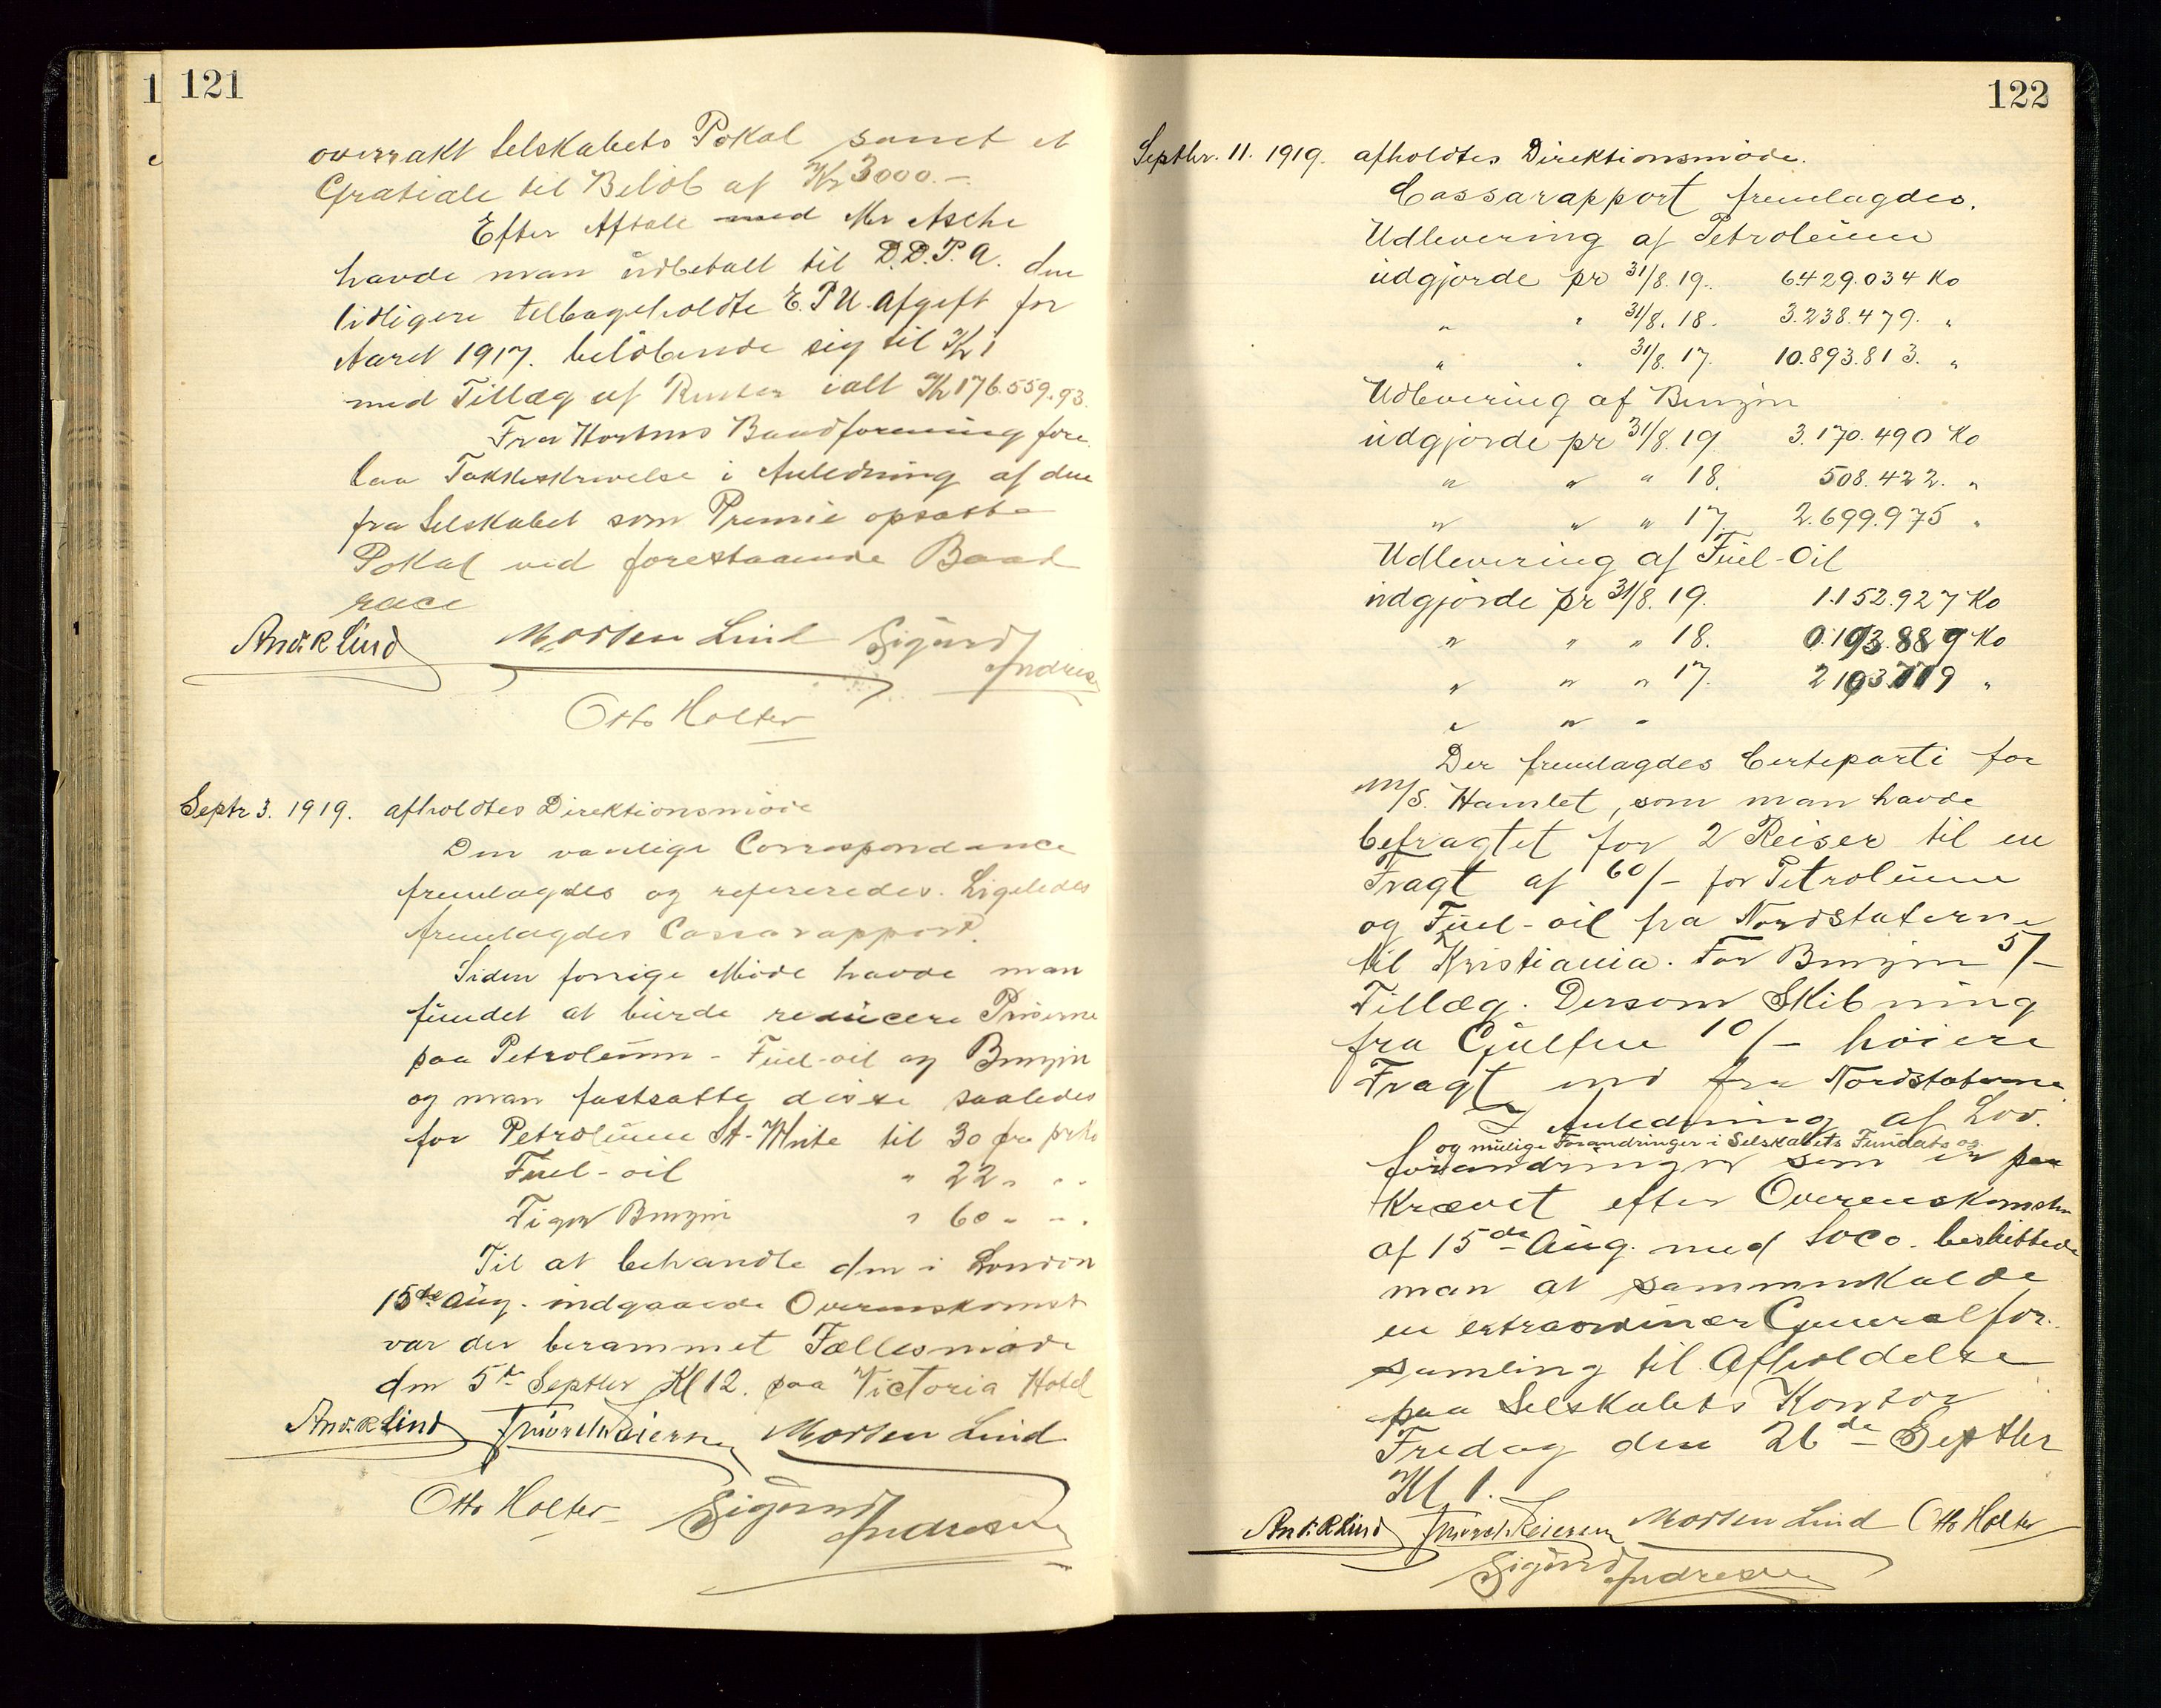 121
overrakt Selskabets Pokal samt et
Gratiale til Beløb af Kr 3000.-
Efter Aftale med Mr Asche
havde man udbetalt til D.D.P.A. den
tidligere tilbageholdte E.P.U. Afgift for
Aaret 1917. beløbende sig til Kr i
med Tillæg af Renter ialt Kr 176.559.93.
Fra Hortens Baadforening fore
laa Takkeskrivelse i Anledning af den
fra Selskabet som Premie opsatte
Pokal ved forestaaende Baad
race
And. R Lind Morten Lind Sigurd
Andresen
Otto Holter
Septr 3. 1919. afholdtes Direktionsmöde
Den vanlige Correspondance
fremlagdes og refereredes. Ligeledes
fremlagdes Cassarapport.
Siden forrige Möde havde man
fundet at burde reducere Priserne
paa Petroleum - Fuel-oil og Benzin
og man fastsatte disse saaledes
for Petroleum St-White til 30 øre pr Ko
Fuel-oil " 22 " " "
Tiger Benzin " 60 " " "
Til at behandle den i London
15de Aug. indgaaede Overenskomst
var der berammet Fællesmöde
den 5te Septbr Kl 12. paa Victoria Hotel
And. R Lind Morten Lind
Otto Holter Sigurd
Andresen
122
Septbr. 11. 1919. afholdtes Direktionsmöde.
Cassarapport fremlagdes.
Udlevering af Petroleum
udgjorde pr 31/8. 19. 6.429.034 Ko
" " 31/8. 18. 3.238.479. "
" " 31/8. 17. 10.893.813. "
Udlevering af Benzin
udgjorde pr 31/8. 19. 3.170.490 Ko
" " " 18. 508.422. "
" " " 17. 2.699.975 "
Udlevering af Fuel-Oil
udgjorde pr 31/8. 19. 1.152.927 Ko
" " " 18. 0.193.889 Ko
" " " 17. 2 193.719 "
" " "
Der fremlagdes Certeparti for
M/S. Hamlet, som man havde
befragtet for 2 Reiser til en
Fragt af 60/- for Petroleum
og Fuel-oil fra Nordstaterne
til Kristiania. For Benzin 5/-
Tillæg. Dersom Skibning
fra Gulfen 10/- høiere
Fragt end fra Nordstaterne
I Anledning af Lov.
og mulige Forandringer i Selskabets Fundats og
forandringer som er paa
krævet efter Overenskomsten
af 15de Aug. med Soco. besluttede
man at sammenkalde
en extraordinær Generalfor.
samling til Afholdelse
paa Selskabets Kontor
Fredag den 26de Septbr
Kl 1.
And. R Lind Morten Lind Otto Holter
Sigurd Andresen